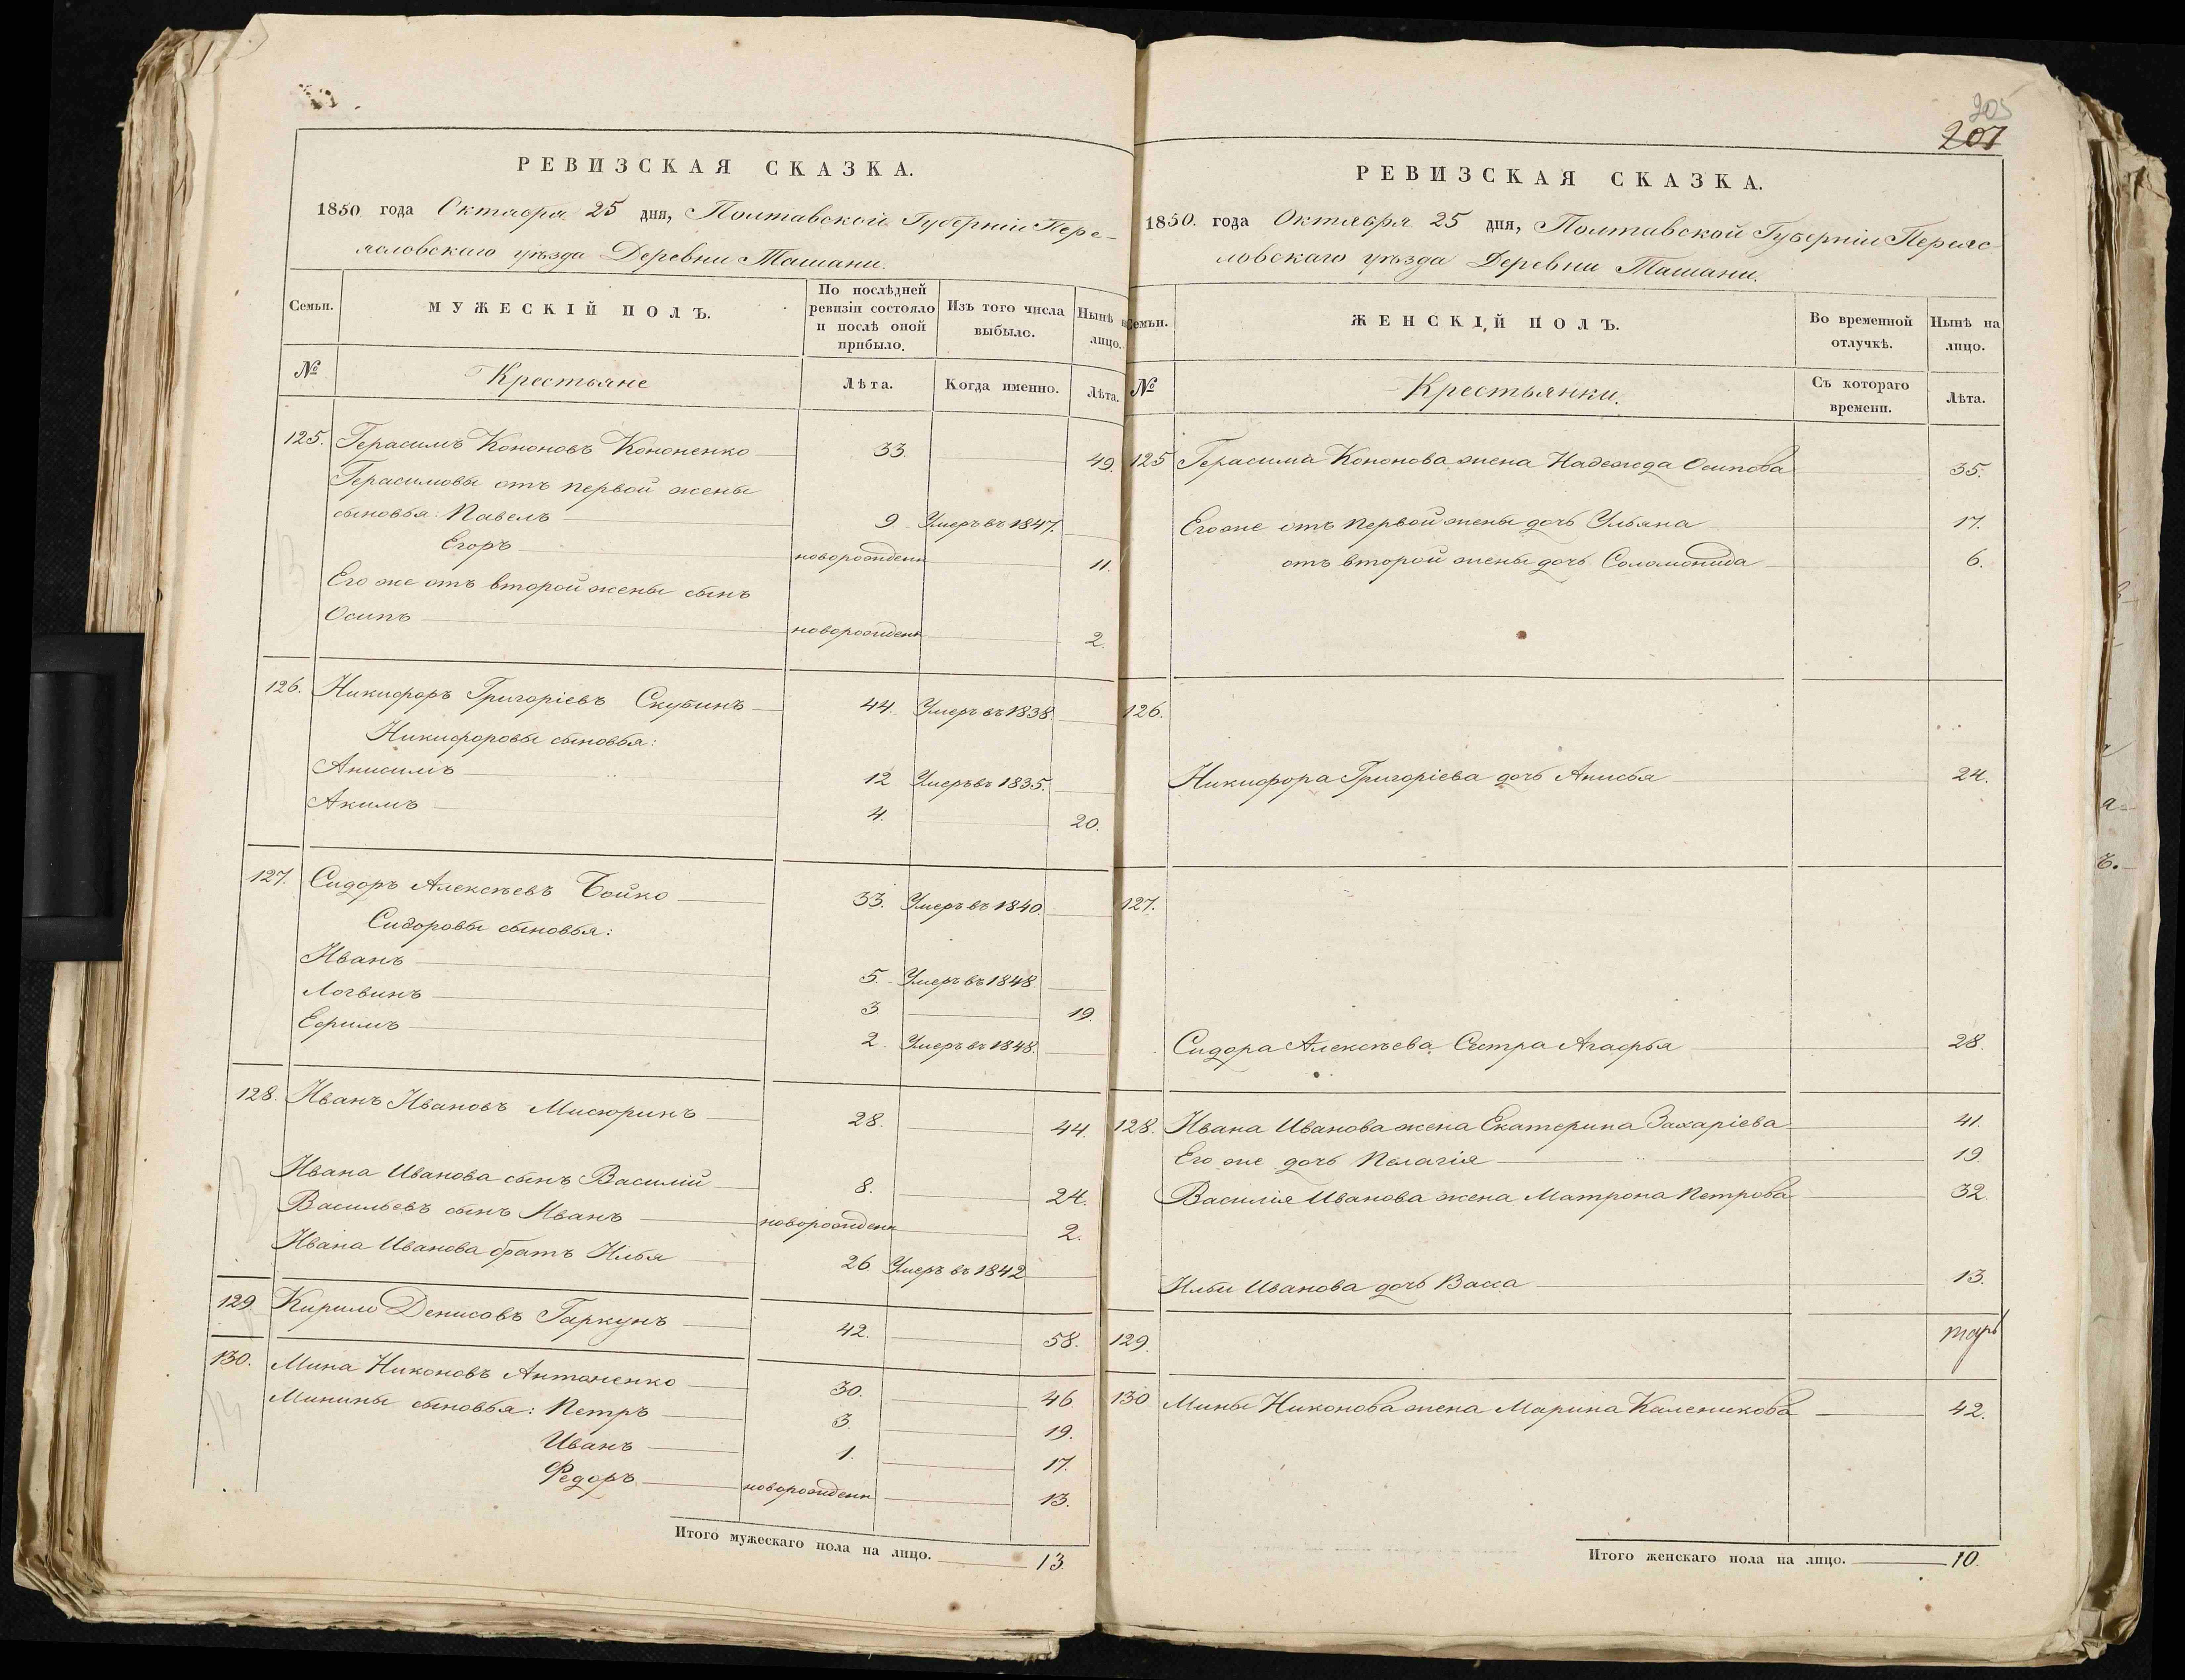 РЕВИЗСКАЯ СКАЗКА.
1850 года Октября 25 дня, Полтавской Губерніи Пере-
яславскаго уѣзда Деревни Ташани.
Семьи.
МУЖЕСКІЙ ПОЛЪ.
По послѣдней
ревизіи состояло
и послѣ оной
прибыло.
Изъ того числа
выбыло.
Нынѣ на
лицо.
№
Крестьяне
Лѣта.
Когда именно.
Лѣта.
125. Герасимъ Кононовъ Кононенко 33. 49.
Герасимовы отъ первой жены
сыновья: Павелъ 9 Умеръ въ 1847.
Егоръ новорожденн 11.
Его же отъ второй жены сынъ
Осипъ новорожденн 2.
126. Никифоръ Григоріевъ Скубинъ 44. Умеръ въ 1838
Никифоровы сыновья:
Анисимъ 12 Умеръ въ 1835.
Акимъ 4. 20.
127. Сидоръ Алексѣевъ Бойко 33. Умеръ въ 1840.
Сидоровы сыновья:
Иванъ 5. Умеръ въ 1848.
Логвинъ 3. 19.
Ефимъ 2. Умеръ въ 1848.
128. Иванъ Ивановъ Мисюринъ 28. 44.
Ивана Иванова сынъ Василій 8. 24.
Васильевъ сынъ Иванъ новорожденн 2.
Ивана Иванова братъ Илья 26 Умеръ въ 1842
129. Кирило Денисовъ Гаркунъ 42. 58.
130. Мина Никоновъ Антоненко 30. 46
Минины сыновья: Петръ 3. 19.
Иванъ 1. 17.
Федоръ новорожденн 13.
Итого мужескаго пола на лицо. 13.
205
207
РЕВИЗСКАЯ СКАЗКА.
1850. года Октября 25 дня, Полтавской Губерніи Переяс
ловскаго уѣзда Деревни Ташани.
Семьи.
ЖЕНСКІЙ ПОЛЪ.
Во временной
отлучкѣ.
Нынѣ на
лицо.
№
Крестьянки.
Съ котораго
времени.
Лѣта.
125 Герасима Кононова жена Надежда Осипова 35.
Его же отъ первой жены дочь Ульяна 17.
отъ второй жены дочь Соломонида 6.
126.
Никифора Григоріева дочь Анисья 24.
127.
Сидора Алексѣева Сестра Агафья 28.
128. Ивана Иванова жена Екатерина Захаріева 41.
Его же дочь Пелагія 19.
Василія Иванова жена Матрона Петрова 32.
Ильи Иванова дочь Васса 13.
129.
130 Мины Никонова жена Марина Каленикова 42.
Итого женскаго пола на лицо. 10.